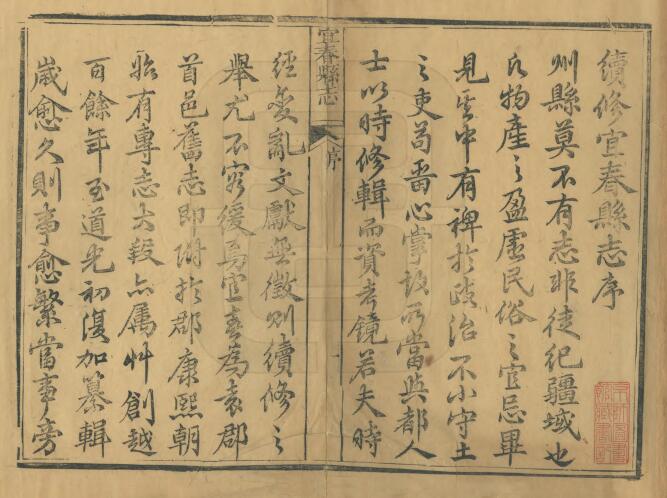 續修宜春縣志序
州縣莫不有志非徒紀疆域也
凡物產之盈虛民俗之宜忌畢
見其中有裨於政治不小守土
之吏苟留心掌故所當與都人
士以時修輯而資考鏡若夫時
宜春縣志
序
一
經變亂文獻無徵則續修之
舉尤不容緩焉宜春為袁郡
首邑舊志即附於郡康熙朝
始有專志大段亦屬艸創越
百餘年至道光初復加纂輯
歲愈久則事愈繁當事旁